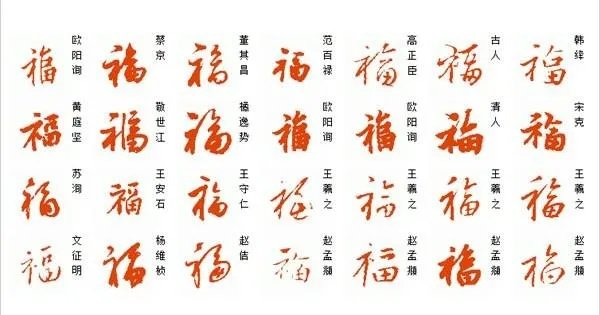 福 欧阳询
福 蔡京
福 董其昌
福 范百禄
福 高正臣
福 古人
福 韩绛
福 黄庭坚
福 敬世江
福 橘逸势
福 欧阳询
福 欧阳询
福 清人
福 宋克
福 苏洵
福 王安石
福 王守仁
福 王羲之
福 王羲之
福 王羲之
福 王羲之
福 文征明
福 杨维桢
福 赵佶
福 赵孟頫
福 赵孟頫
福 赵孟頫
福 赵孟頫